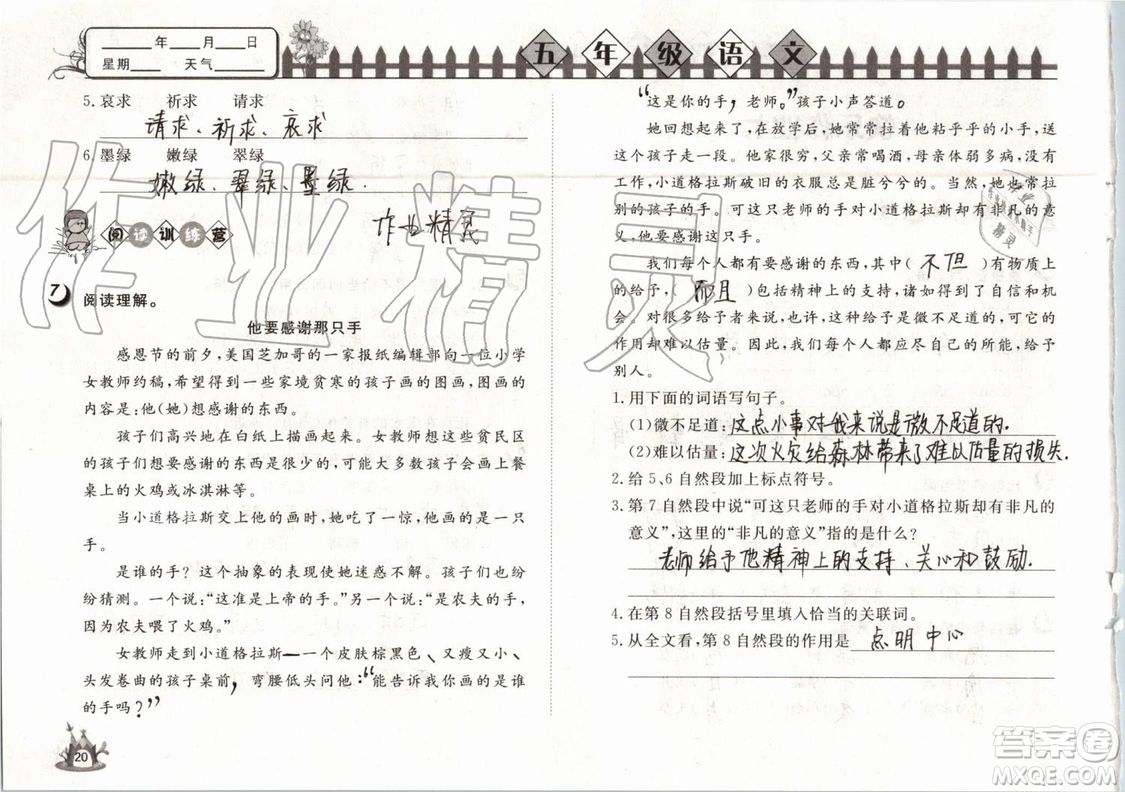 ____年____月____日
星期____ 天气____
五年级语文
5.哀求 祈求 请求
请求、祈求、哀求
6.墨绿 嫩绿 翠绿
嫩绿、翠绿、墨绿.
阅读训练营
作业精灵
7 阅读理解。
他要感谢那只手
感恩节的前夕,美国芝加哥的一家报纸编辑部向一位小学
女教师约稿,希望得到一些家境贫寒的孩子画的图画,图画的
内容是:他(她)想感谢的东西。
孩子们高兴地在白纸上描画起来。女教师想这些贫民区
的孩子们想要感谢的东西是很少的,可能大多数孩子会画上餐
桌上的火鸡或冰淇淋等。
当小道格拉斯交上他的画时,她吃了一惊,他画的是一只
手。
是谁的手?这个抽象的表现使她迷惑不解。孩子们也纷
纷猜测。一个说:“这准是上帝的手。”另一个说:“是农夫的手,
因为农夫喂了火鸡。”
女教师走到小道格拉斯—一个皮肤棕黑色、又瘦又小、
头发卷曲的孩子桌前,弯腰低头问他:“能告诉我你画的是谁
的手吗?”
20
“这是你的手,老师。”孩子小声答道。
她回想起来了,在放学后,她常常拉着他粘乎乎的小手,送
这个孩子走一段。他家很穷,父亲常喝酒,母亲体弱多病,没有
工作,小道格拉斯破旧的衣服总是脏兮兮的。当然,她也常拉
别的孩子的手。可这只老师的手对小道格拉斯却有非凡的意
义,他要感谢这只手。
我们每个人都有要感谢的东西,其中(不但)有物质上
的给予,(而且)包括精神上的支持,诸如得到了自信和机
会。对很多给予者来说,也许,这种给予是微不足道的,可它的
作用却难以估量。因此,我们每个人都应尽自己的所能,给予
别人。
1.用下面的词语写句子。
(1)微不足道:这点小事对我来说是微不足道的.
(2)难以估量:这次火灾给森林带来了难以估量的损失.
2.给5、6自然段加上标点符号。
3.第7自然段中说“可这只老师的手对小道格拉斯却有非凡的
意义”,这里的“非凡的意义”指的是什么?
老师给予他精神上的支持、关心和鼓励.
4.在第8自然段括号里填入恰当的关联词。
5.从全文看,第8自然段的作用是 点明中心
作业精灵
答案圈
MXQE.COM